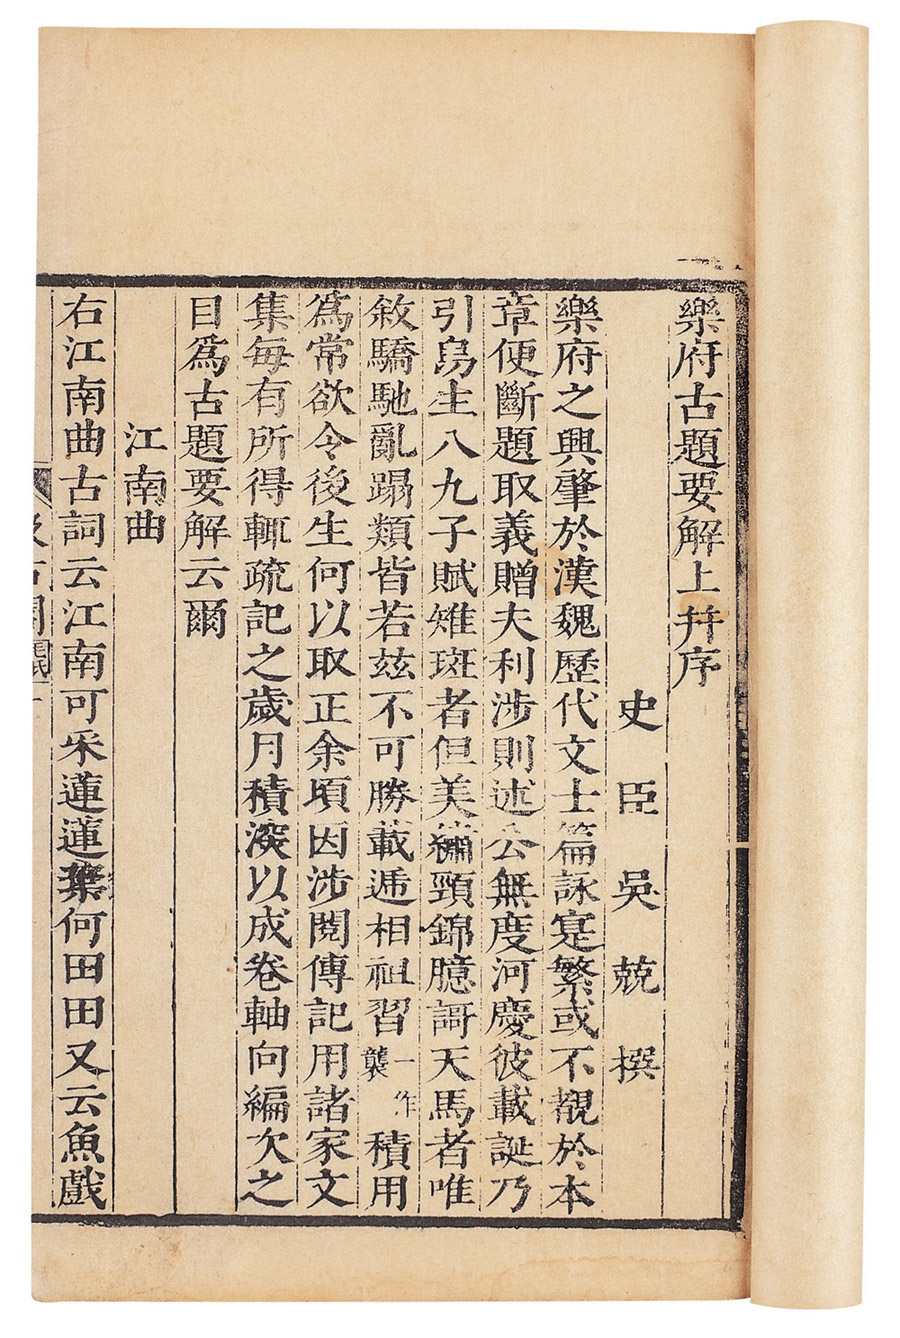 樂府古題要解上并序
史臣吳兢撰
樂府之興肇於漢魏歷代文士篇詠寔繁或不覩於本
章便斷題取義贈夫利涉則述公無度河慶彼載誕乃
引烏生八九子賦雉斑者但美繡頸錦臆謌天馬者唯
敘驕馳亂蹋類皆若茲不可勝載遞相祖習一作襲積用
爲常欲令後生何以取正余頃因涉閱傳記用諸家文
集每有所得輒疏記之歲月積深以成卷軸向編次之
目爲古題要解云爾
江南曲
右江南曲古詞云江南可采蓮蓮葉何田田又云魚戲
汲古閣
毛氏